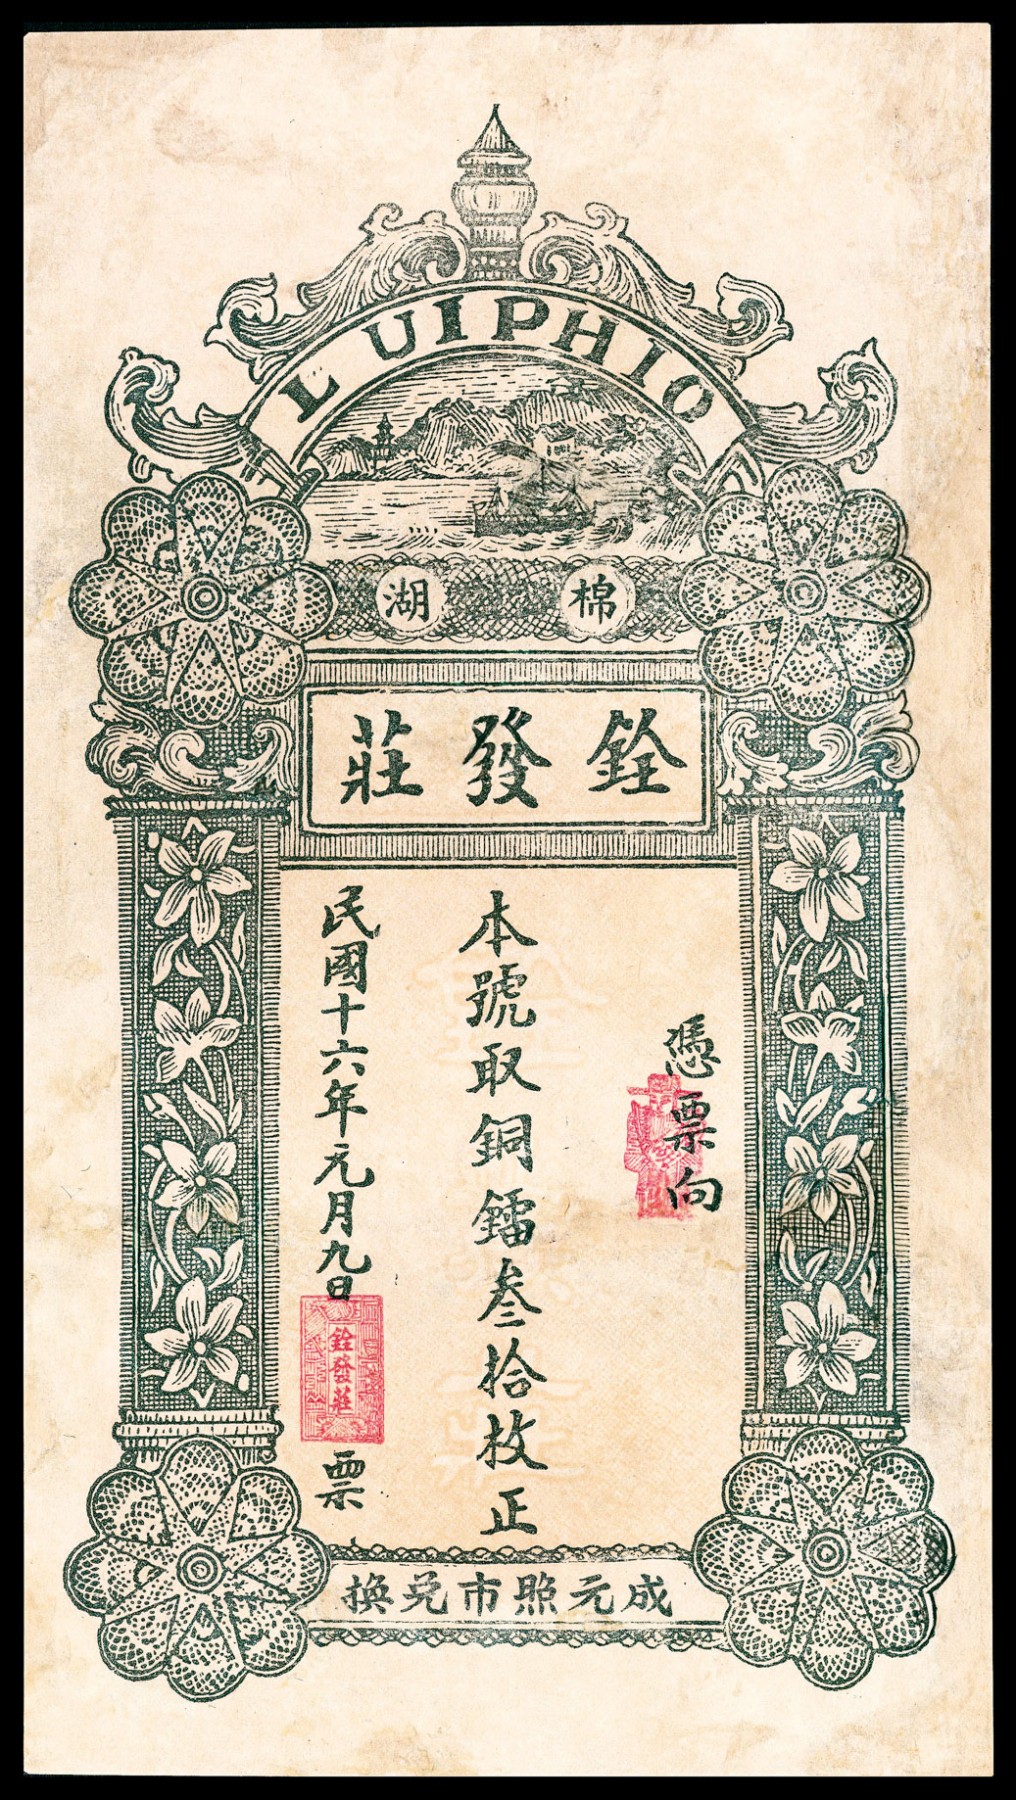 LUIPHIO
棉湖
銓發莊
憑票向
本號取銅鐳叁拾枚正
民國十六年元月九日
銓發莊
票
成元照市兑換